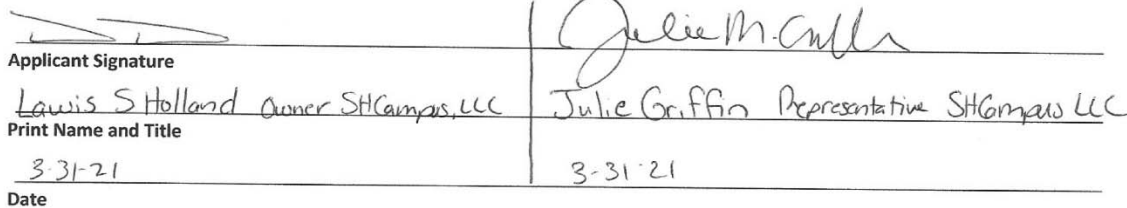 Julie M. Griffin
Applicant Signature
Lawis S Holland Owner SHCampus, LLC Julie Griffin Representative SHCampus LLC
Print Name and Title
3-31-21 3-31-21
Date